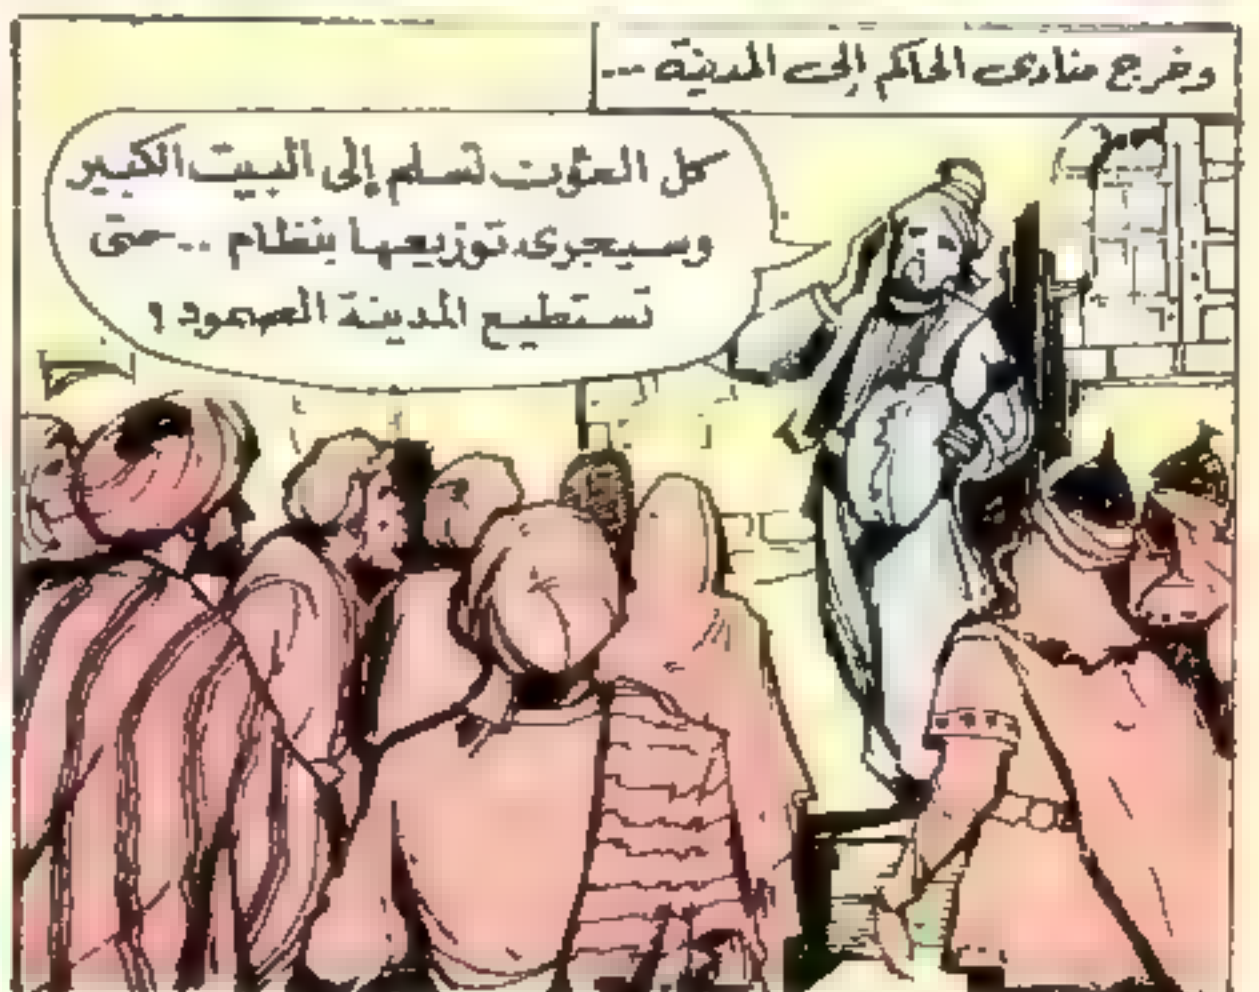 وخرج منادى الحاكم إلى المدينة ...
كل المؤن تسلم إلى البيت الكبير
وسيجرى توزيعها بنظام .. حتى
تستطيع المدينة الصمود !